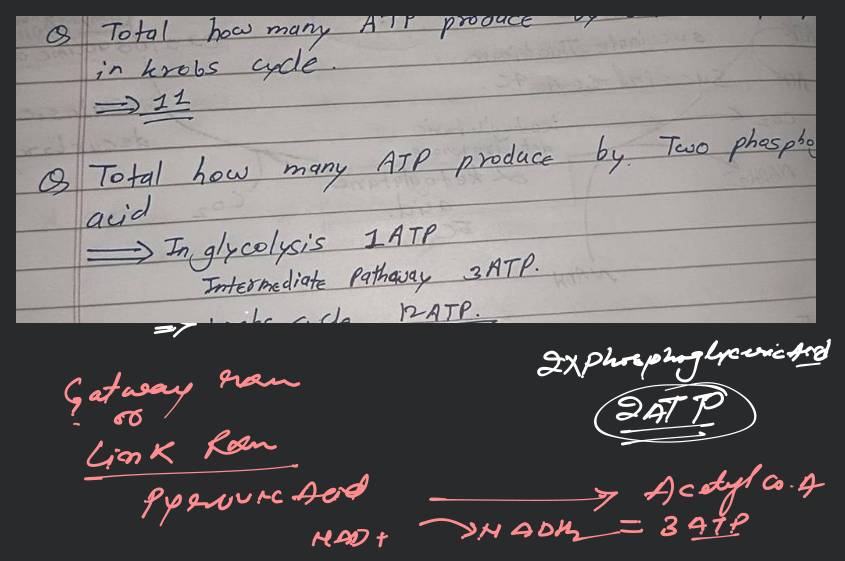 Q Total how many ATP produce by
in krebs cycle.
⇒ 11
Q Total how many ATP produce by. Two phospho
acid
⇒ In glycolysis 1ATP
Intermediate Pathway 3ATP.
12ATP.
⇒
2xPhosphoglyceric Acid
2ATP
Gatway rxn
or
Link Rxn
Pyruvic Acid → Acetyl Co.A
NAD+ → NADH2 = 3 ATP